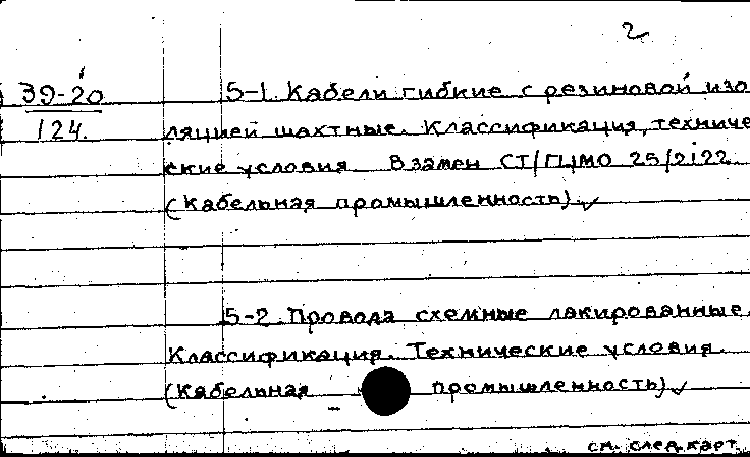 2
39-20 5-1. Кабели гибкие с резиновой изо
124. ляцией шахтные. Классификация, техниче
ские условия Взамен СТ/ГЦМО 25/2122
(Кабельная промышленность).
5-2. Провода схемные лакированные.
Классификация. Технические условия.
(Кабельная промышленность)
см. след. карт.